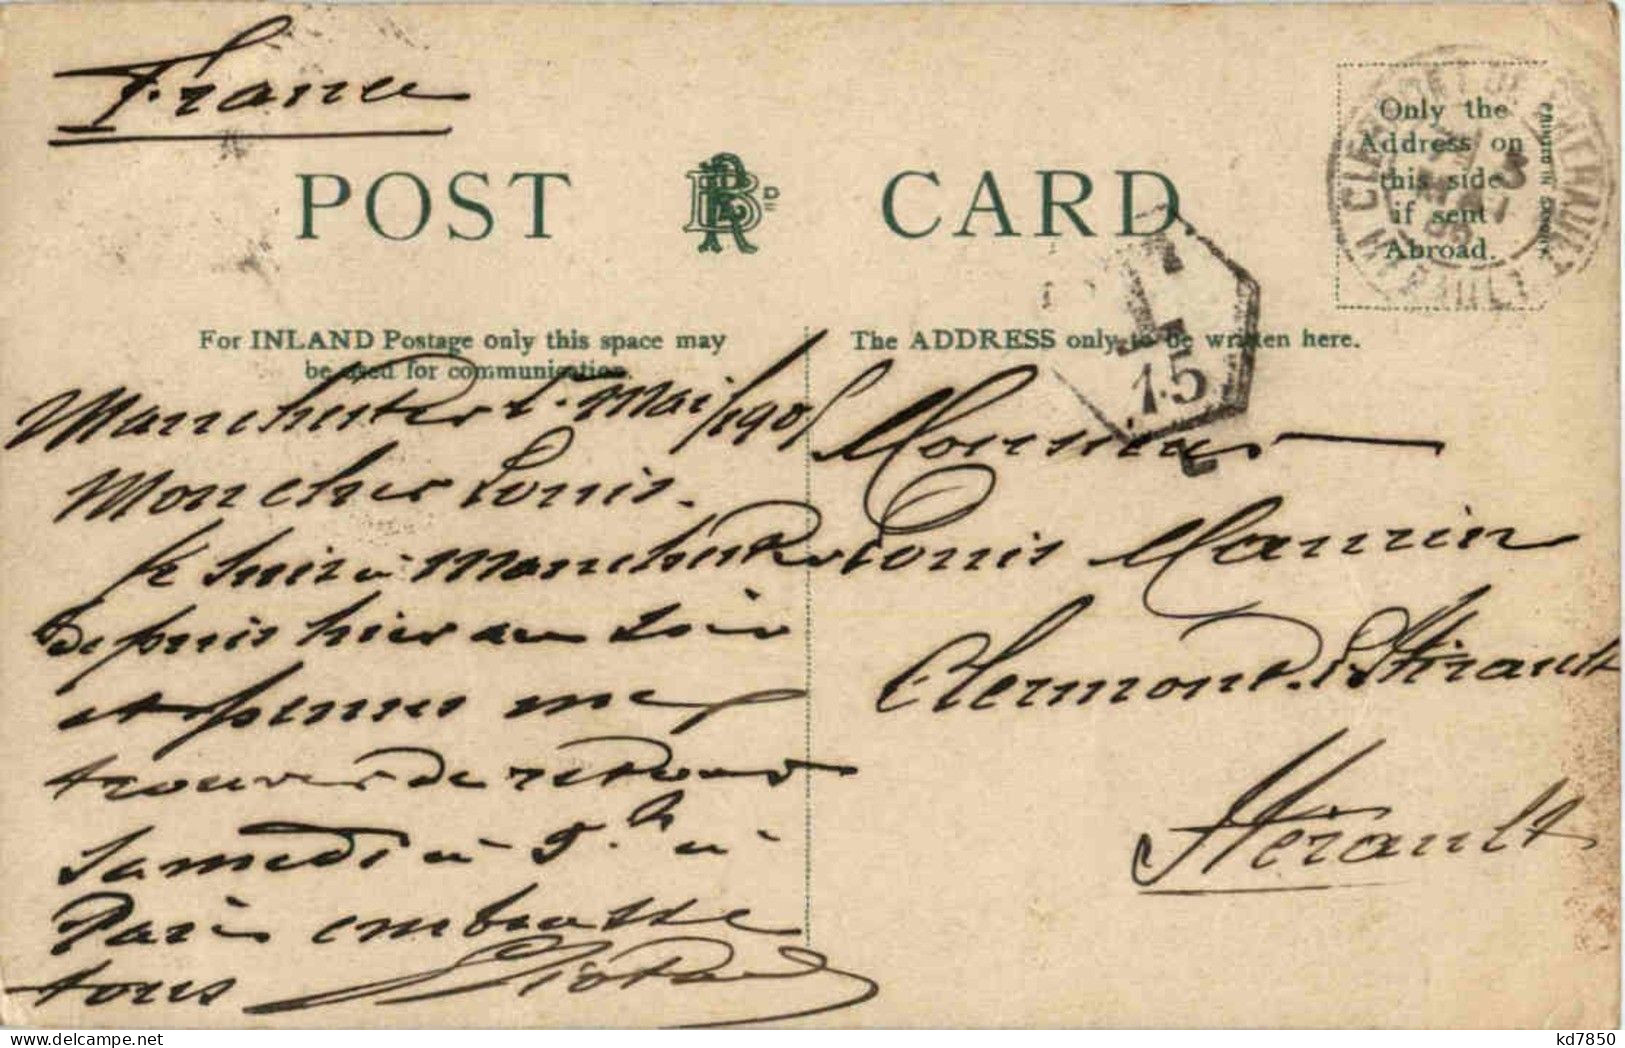 France
POST CARD
Only the
Address on
this side
if sent
Abroad.
T
15
For INLAND Postage only this space may
be used for communication.
The ADDRESS only to be written here.
Manchester Mai/190
Mon cher Louis.
Je suis à Manchester
depuis hier au soir
et pense me
trouver de retour
Samedi à 5.h à
Paris embrasse
tous
Monsieur
Louis Maurin
Clermont-l'Hérault
Hérault
kd7850